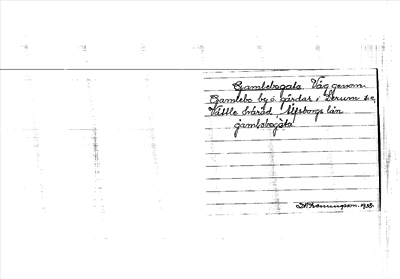 Gamlebogata. Väg genom
Gamlebo by o. gårdar i Lerum s:n,
Vättle härad, Älfsborgs län
gambebogata
1938.